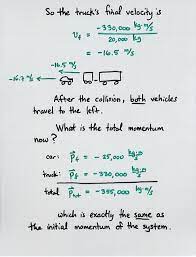 So the truck's final velocity is
v⃗f = -330,000 kg·m/s
20,000 kg
= -16.5 m/s
-16.5 m/s
-16.7 m/s
After the collision, both vehicles
travel to the left.
What is the total momentum
now?
car: p⃗f = - 25,000 kg·m/s
truck: p⃗f = - 330,000 kg·m/s
total p⃗tot = - 355,000 kg·m/s
which is exactly the same as
the initial momentum of the system.